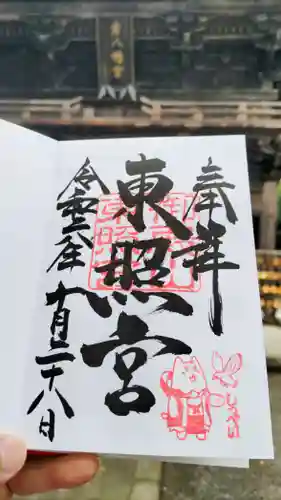 奉拝
東照宮
令和六年
十月二十八日